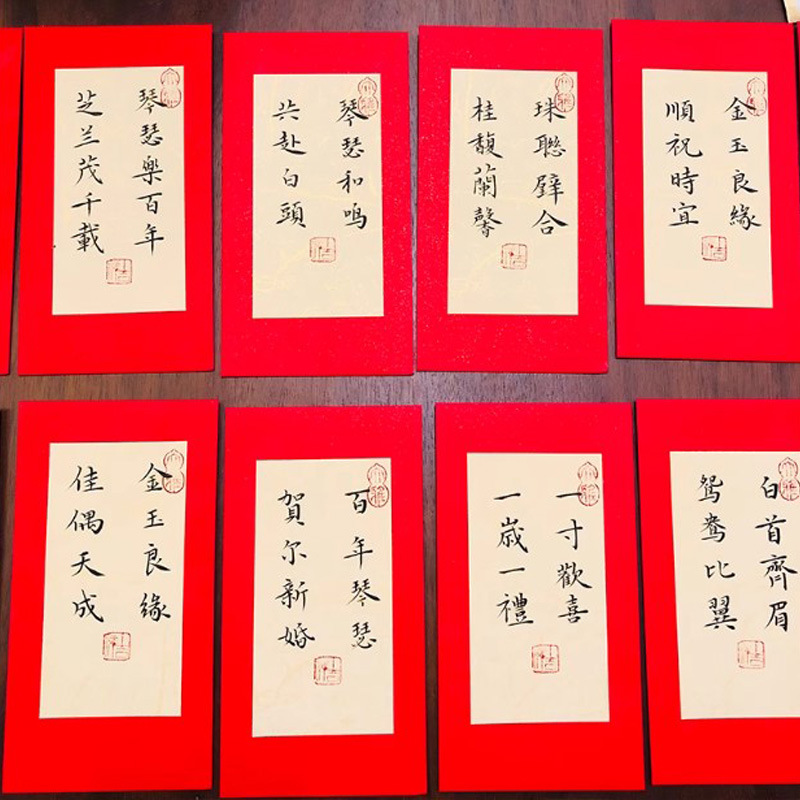 琴瑟樂百年
芝兰茂千載
琴瑟和鸣
共赴白頭
珠聯璧合
桂馥蘭馨
金玉良緣
順祝時宜
金玉良缘
佳偶天成
百年琴瑟
賀尔新婚
一寸歡喜
一歲一禮
白首齊眉
鸳鸯比翼